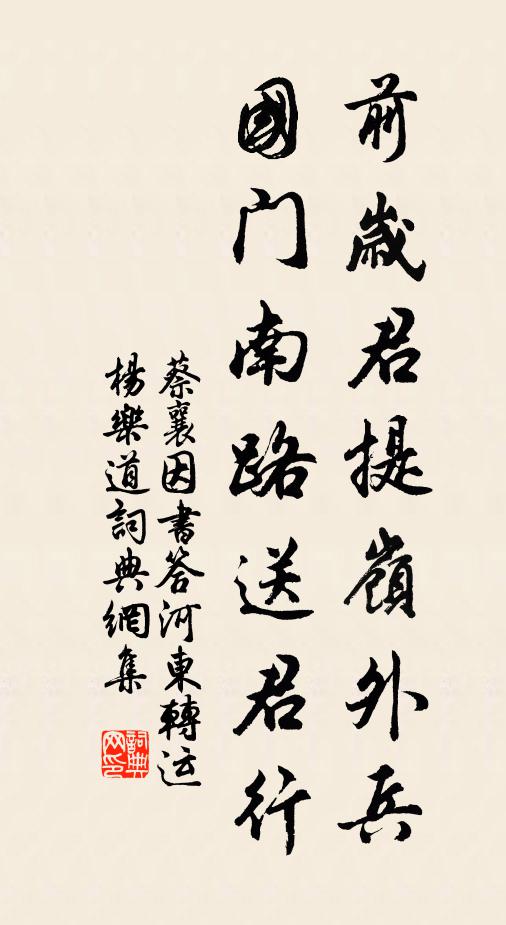 前歲君提嶺外兵
國门南路送君行
蔡襄因書答河東轉运
楊樂道詞典網集
詞典网印